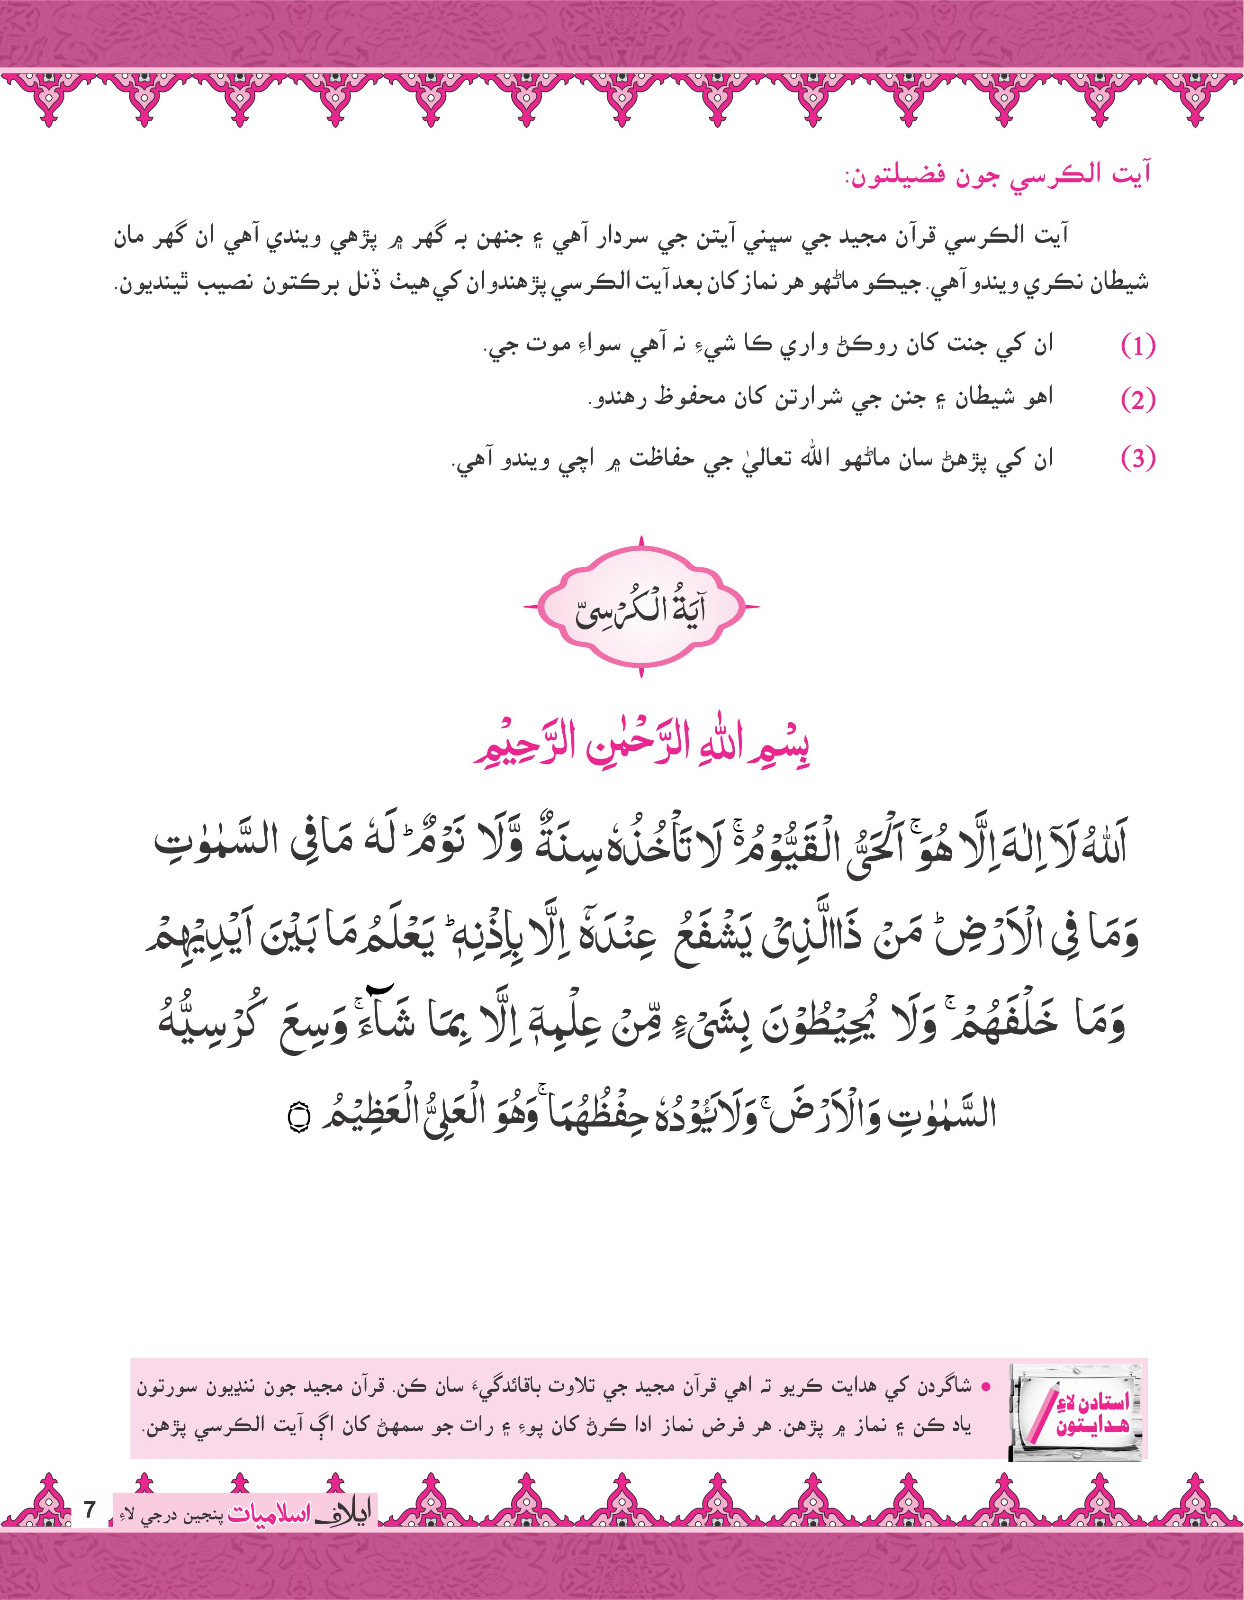 آيت الڪرسي جون فضيلتون:
آيت الڪرسي قرآن مجيد جي سڀني آيتن جي سردار آهي ۽ جنهن به گهر ۾ پڙهي ويندي آهي ان گهر مان
شيطان نڪري ويندو آهي. جيڪو ماڻهو هر نماز کان بعد آيت الڪرسي پڙهندو ان کي هيٺ ڏنل برڪتون نصيب ٿينديون.
(1) ان کي جنت کان روڪڻ واري ڪا شيءِ نہ آهي سواءِ موت جي.
(2) اهو شيطان ۽ جنن جي شرارتن کان محفوظ رهندو.
(3) ان کي پڙهڻ سان ماڻهو الله تعاليٰ جي حفاظت ۾ اچي ويندو آهي.
آيَةُ الْكُرْسِىّ
بِسْمِ اللهِ الرَّحْمٰنِ الرَّحِيْمِ
اَللهُ لَآ اِلٰهَ اِلَّا هُوَ ۚ اَلْحَىُّ الْقَيُّوْمُ ۚ لَا تَاْخُذُهٗ سِنَةٌ وَّلَا نَوْمٌ ؕ لَهٗ مَا فِى السَّمٰوٰتِ
وَمَا فِى الْاَرْضِ ؕ مَنْ ذَا الَّذِىْ يَشْفَعُ عِنْدَهٗٓ اِلَّا بِاِذْنِهٖ ؕ يَعْلَمُ مَا بَيْنَ اَيْدِيْهِمْ
وَمَا خَلْفَهُمْ ۚ وَلَا يُحِيْطُوْنَ بِشَىْءٍ مِّنْ عِلْمِهٖٓ اِلَّا بِمَا شَآءَ ۚ وَسِعَ كُرْسِيُّهُ
السَّمٰوٰتِ وَالْاَرْضَ ۚ وَلَا يَـُٔوْدُهٗ حِفْظُهُمَا ۚ وَهُوَ الْعَلِىُّ الْعَظِيْمُ ۝
استادن لاءِ
هدايتون
• شاگردن کي هدايت ڪريو تہ اهي قرآن مجيد جي تلاوت باقائدگيءَ سان ڪن. قرآن مجيد جون ننڍيون سورتون
ياد ڪن ۽ نماز ۾ پڙهن. هر فرض نماز ادا ڪرڻ کان پوءِ ۽ رات جو سمهڻ کان اڳ آيت الڪرسي پڙهن.
ايلاف اسلاميات پنجين درجي لاءِ 7